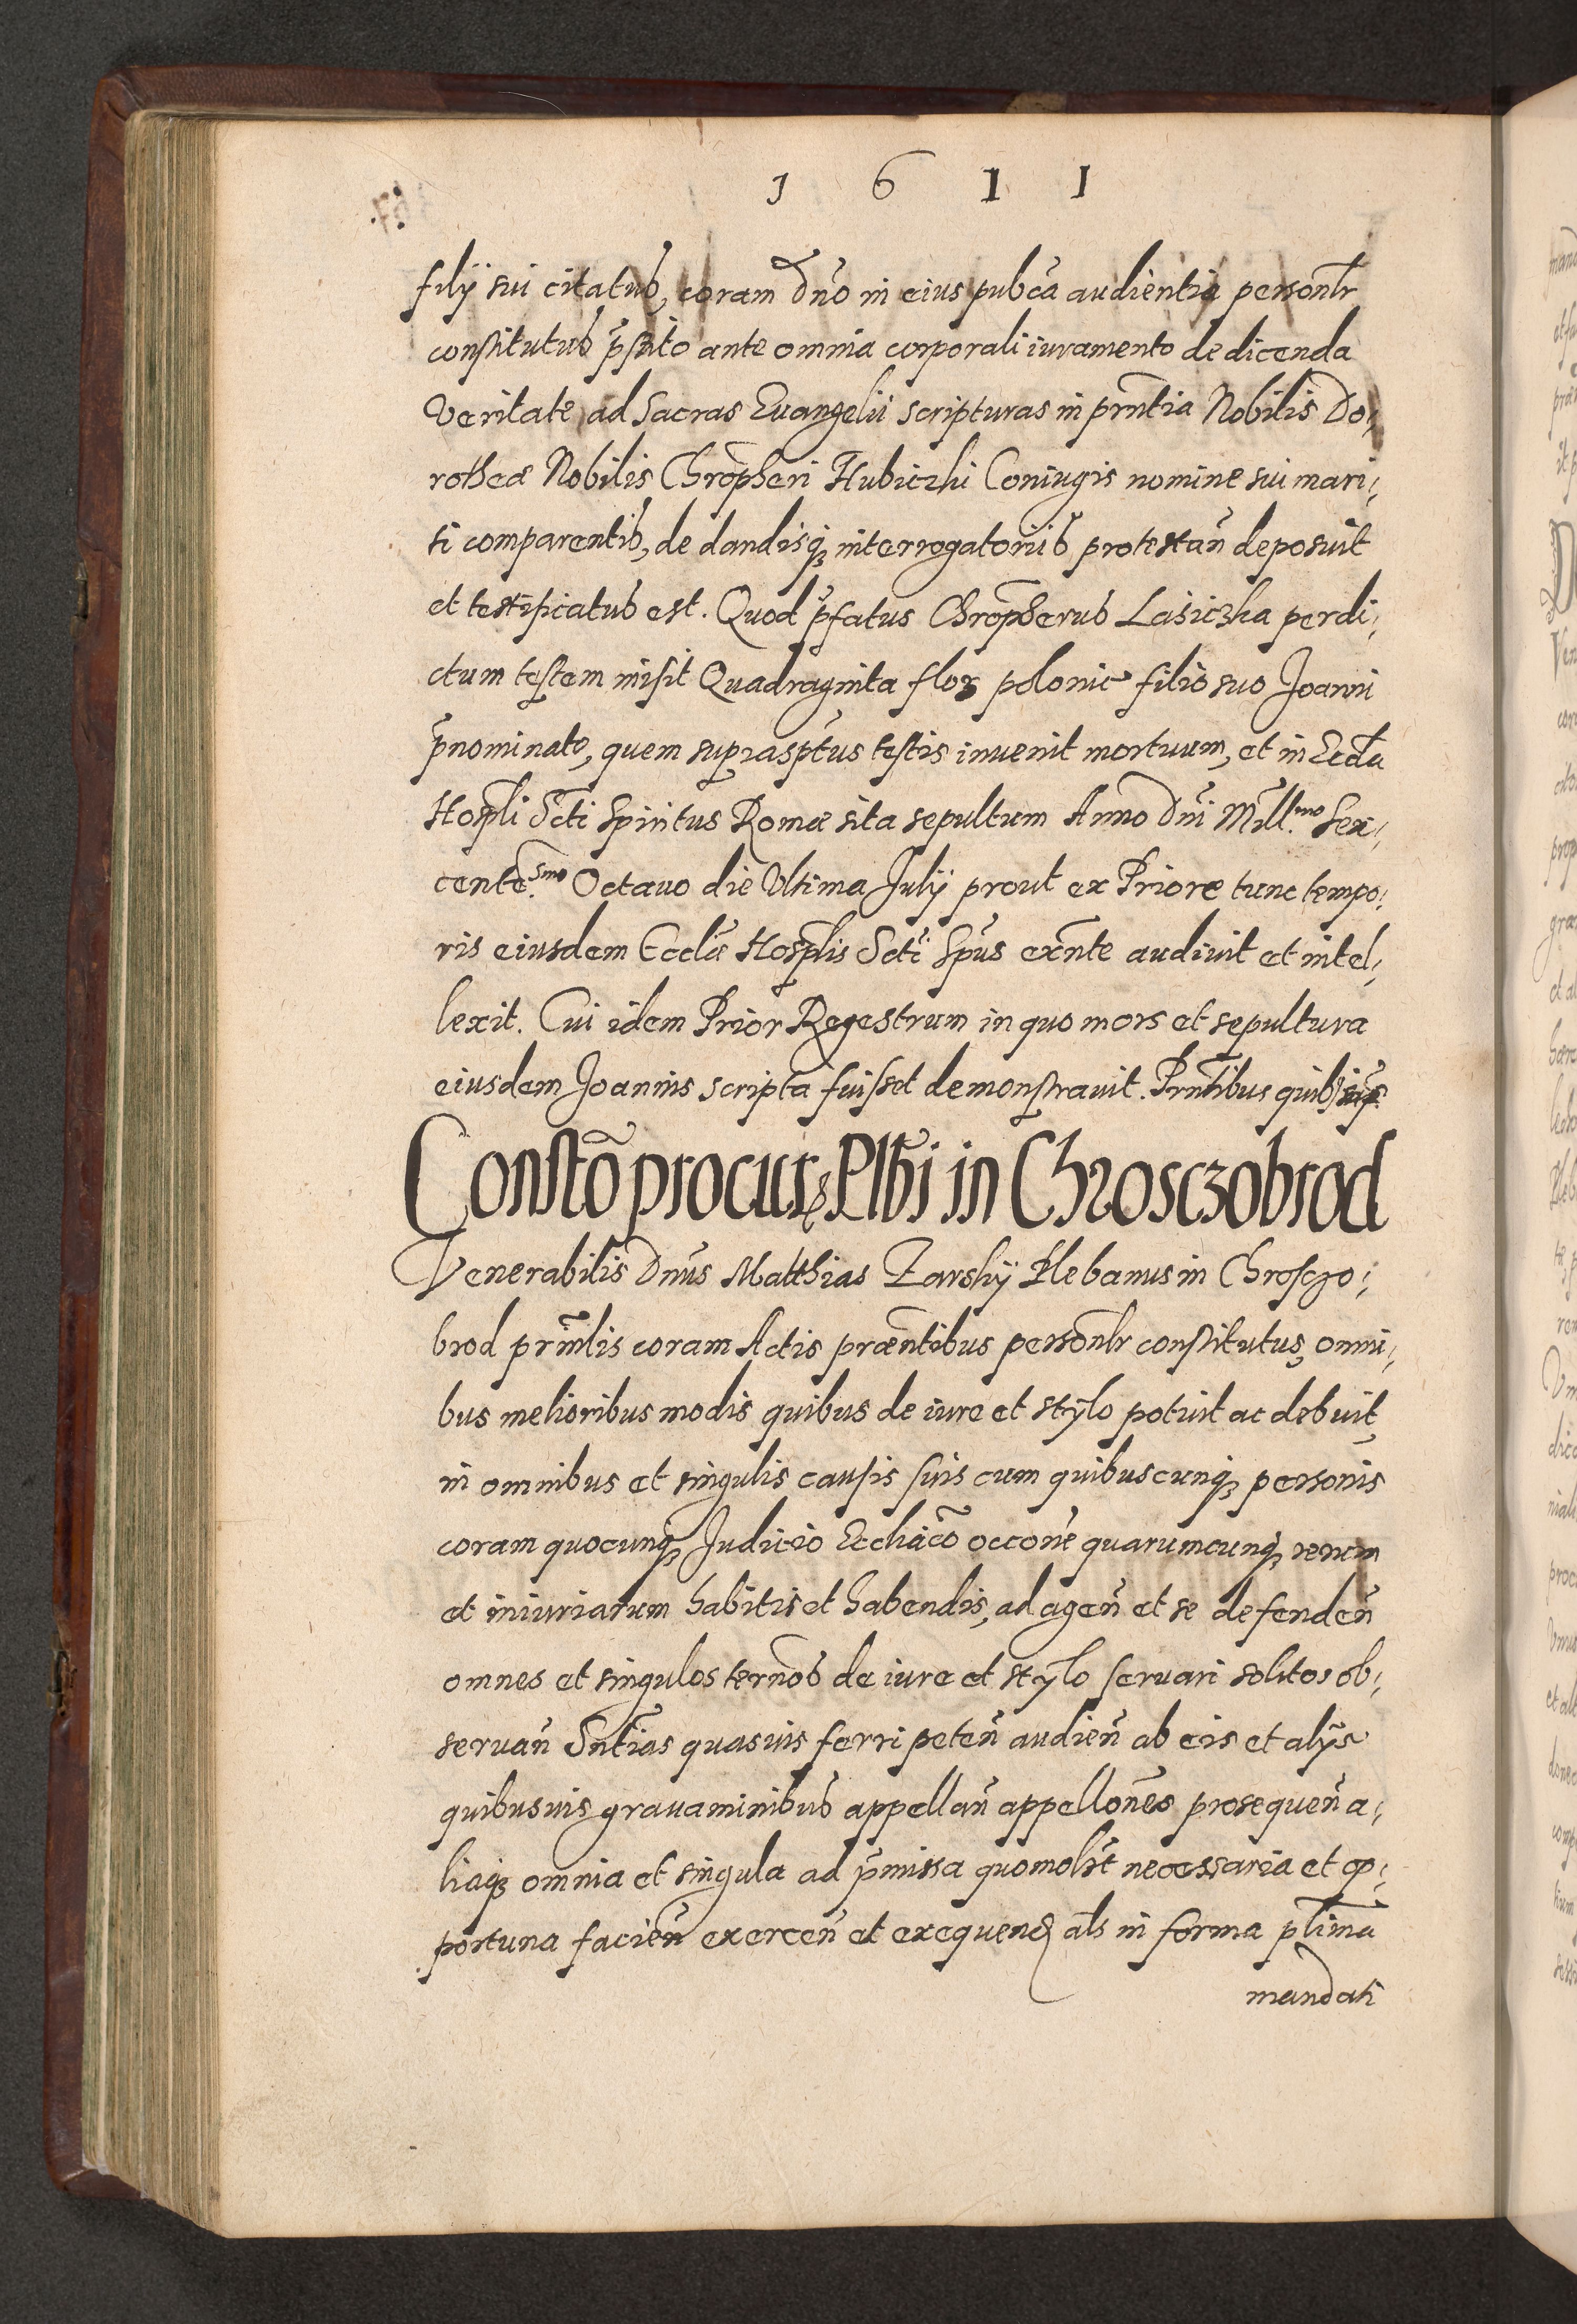 1 6 1 1
filÿ sui citatus, coram Dn̄o in eius pub̄ca audientia personlr̄
constitutus p̄stito ante omnia corporali iuramento de dicenda
Veritate ad Sacras Euangelii scripturas in prn̄tia Nobilis Do,,
rotheæ Nobilis Chrop̄heri Hubiczki Coniugis nomine sui mari,,
ti comparentis, de dandisq₃ interrogatoriis protestan̄ deposuit
et testificatus est. Quod p̄fatus Chrop̄herus Lasiczka per di,,
ctum testem misit Quadraginta flor polonic filio suo Joanni
p̄nominato, quem suprasp̄tus testis inuenit mortuum, et in Eccl̄a
Hospl̄i Sc̄ti Spiritus Romæ sita sepultum Anno Dn̄i Mill.mo Sex,,
cente.smo Octauo die Vltima Julÿ prout ex Priore tunc tempo,,
ris eiusdem Eccl̄æ Hospl̄is Sc̄ti Sp̄us exn̄te audiuit et intel,,
lexit. Cui idem Prior Regestrum in quo mors et sepultura
eiusdem Joannis scripta fuisset demonstrauit. Prn̄tibus quibs sup̄
Constō procur Plb̄i in Chrosczobrod
Venerabilis Dn̄us Matthias Zarskÿ Plebanus in Chrosczo,,
brod prin̄lis coram Actis præn̄tibus personlr̄ constitutus, omni,,
bus melioribus modis quibus de iure et stÿlo potuit ac debuit,
in omnibus et singulis causis suis cum quibuscunq₃ personis
coram quocunq₃ Judicio Eccl̄iac̄o occōne quarumcunq₃ rerum
et iniuriarum habitis et habendis, ad agen̄ et se defenden̄
omnes et singulos tern̄os de iure et stÿlo seruari solitos ob,,
seruan̄ Sn̄tias quasuis ferri peten̄ audien̄ ab eis et alÿs
quibusuis grauaminibus appellan̄ appellōnes prosequen̄ a,,
liaq₃ omnia et singula ad p̄missa quomolt̄ necessaria et op,,
portuna facien̄ exercen̄ et exequend als in forma pl̄ima
mandati